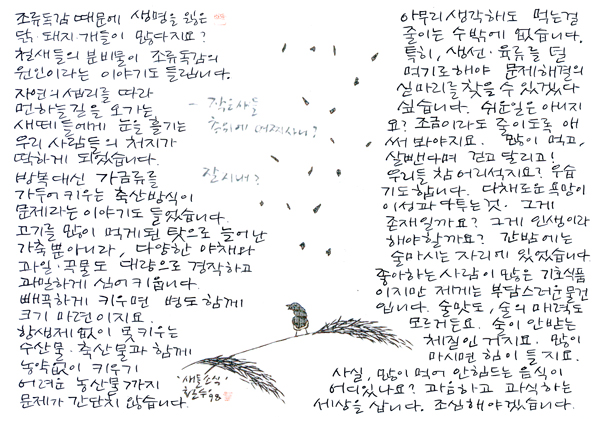 조류독감 때문에 생명을 잃은
닭·돼지·개들이 많다지요?
철새들의 분비물이 조류독감의
원인이라는 이야기도 들립니다.
자연의 섭리를 따라
먼하늘길을 오가는
새떼들에게 눈을 흘기는
우리 사람들의 처지가
딱하게 되었습니다.
방목대신 가금류를
가두어 키우는 축산방식이
문제라는 이야기도 들었습니다.
고기를 많이 먹게된 탓으로 늘어난
가축뿐아니라, 다양한 야채와
과일·곡물도 대량으로 경작하고
과밀하게 심어 키웁니다.
빼곡하게 키우면 병도 함께
크기 마련이지요.
항생제 없이 못키우는
수산물·축산물과 함께
농약없이 키우기
어려운 농산물까지
문제가 간단치 않습니다.
작은새들
추위에 어찌사니?
잘 지내?
아무리 생각해도 먹는걸
줄이는 수밖에 없습니다.
특히, 생선·육류를 덜
먹기로해야 문제해결의
실마리를 찾을 수 있겠다
싶습니다. 쉬운일은 아니지
요? 조금이라도 줄이도록 애
써 봐야지요. 많이 먹고,
살뺀다며 걷고 달리고!
우리들 참 어리석지요? 우습
기도합니다. 다채로운 욕망이
이성과 다투는 것. 그게
존재일까요? 그게 인생이라
해야할까요? 간밤에는
술마시는 자리에 있었습니다.
좋아하는 사람이 많은 기호식품
이지만 제게는 부담스러운 물건
입니다. 술맛도, 술의 매력도
모르거든요. 술이 안받는
체질인 거지요. 많이
마시면 힘이 들지요.
사실, 많이 먹어 안힘드는 음식이
어디있나요? 과음하고 과식하는
세상을 삽니다. 조심해야겠습니다.
'새들소식'
철수 98